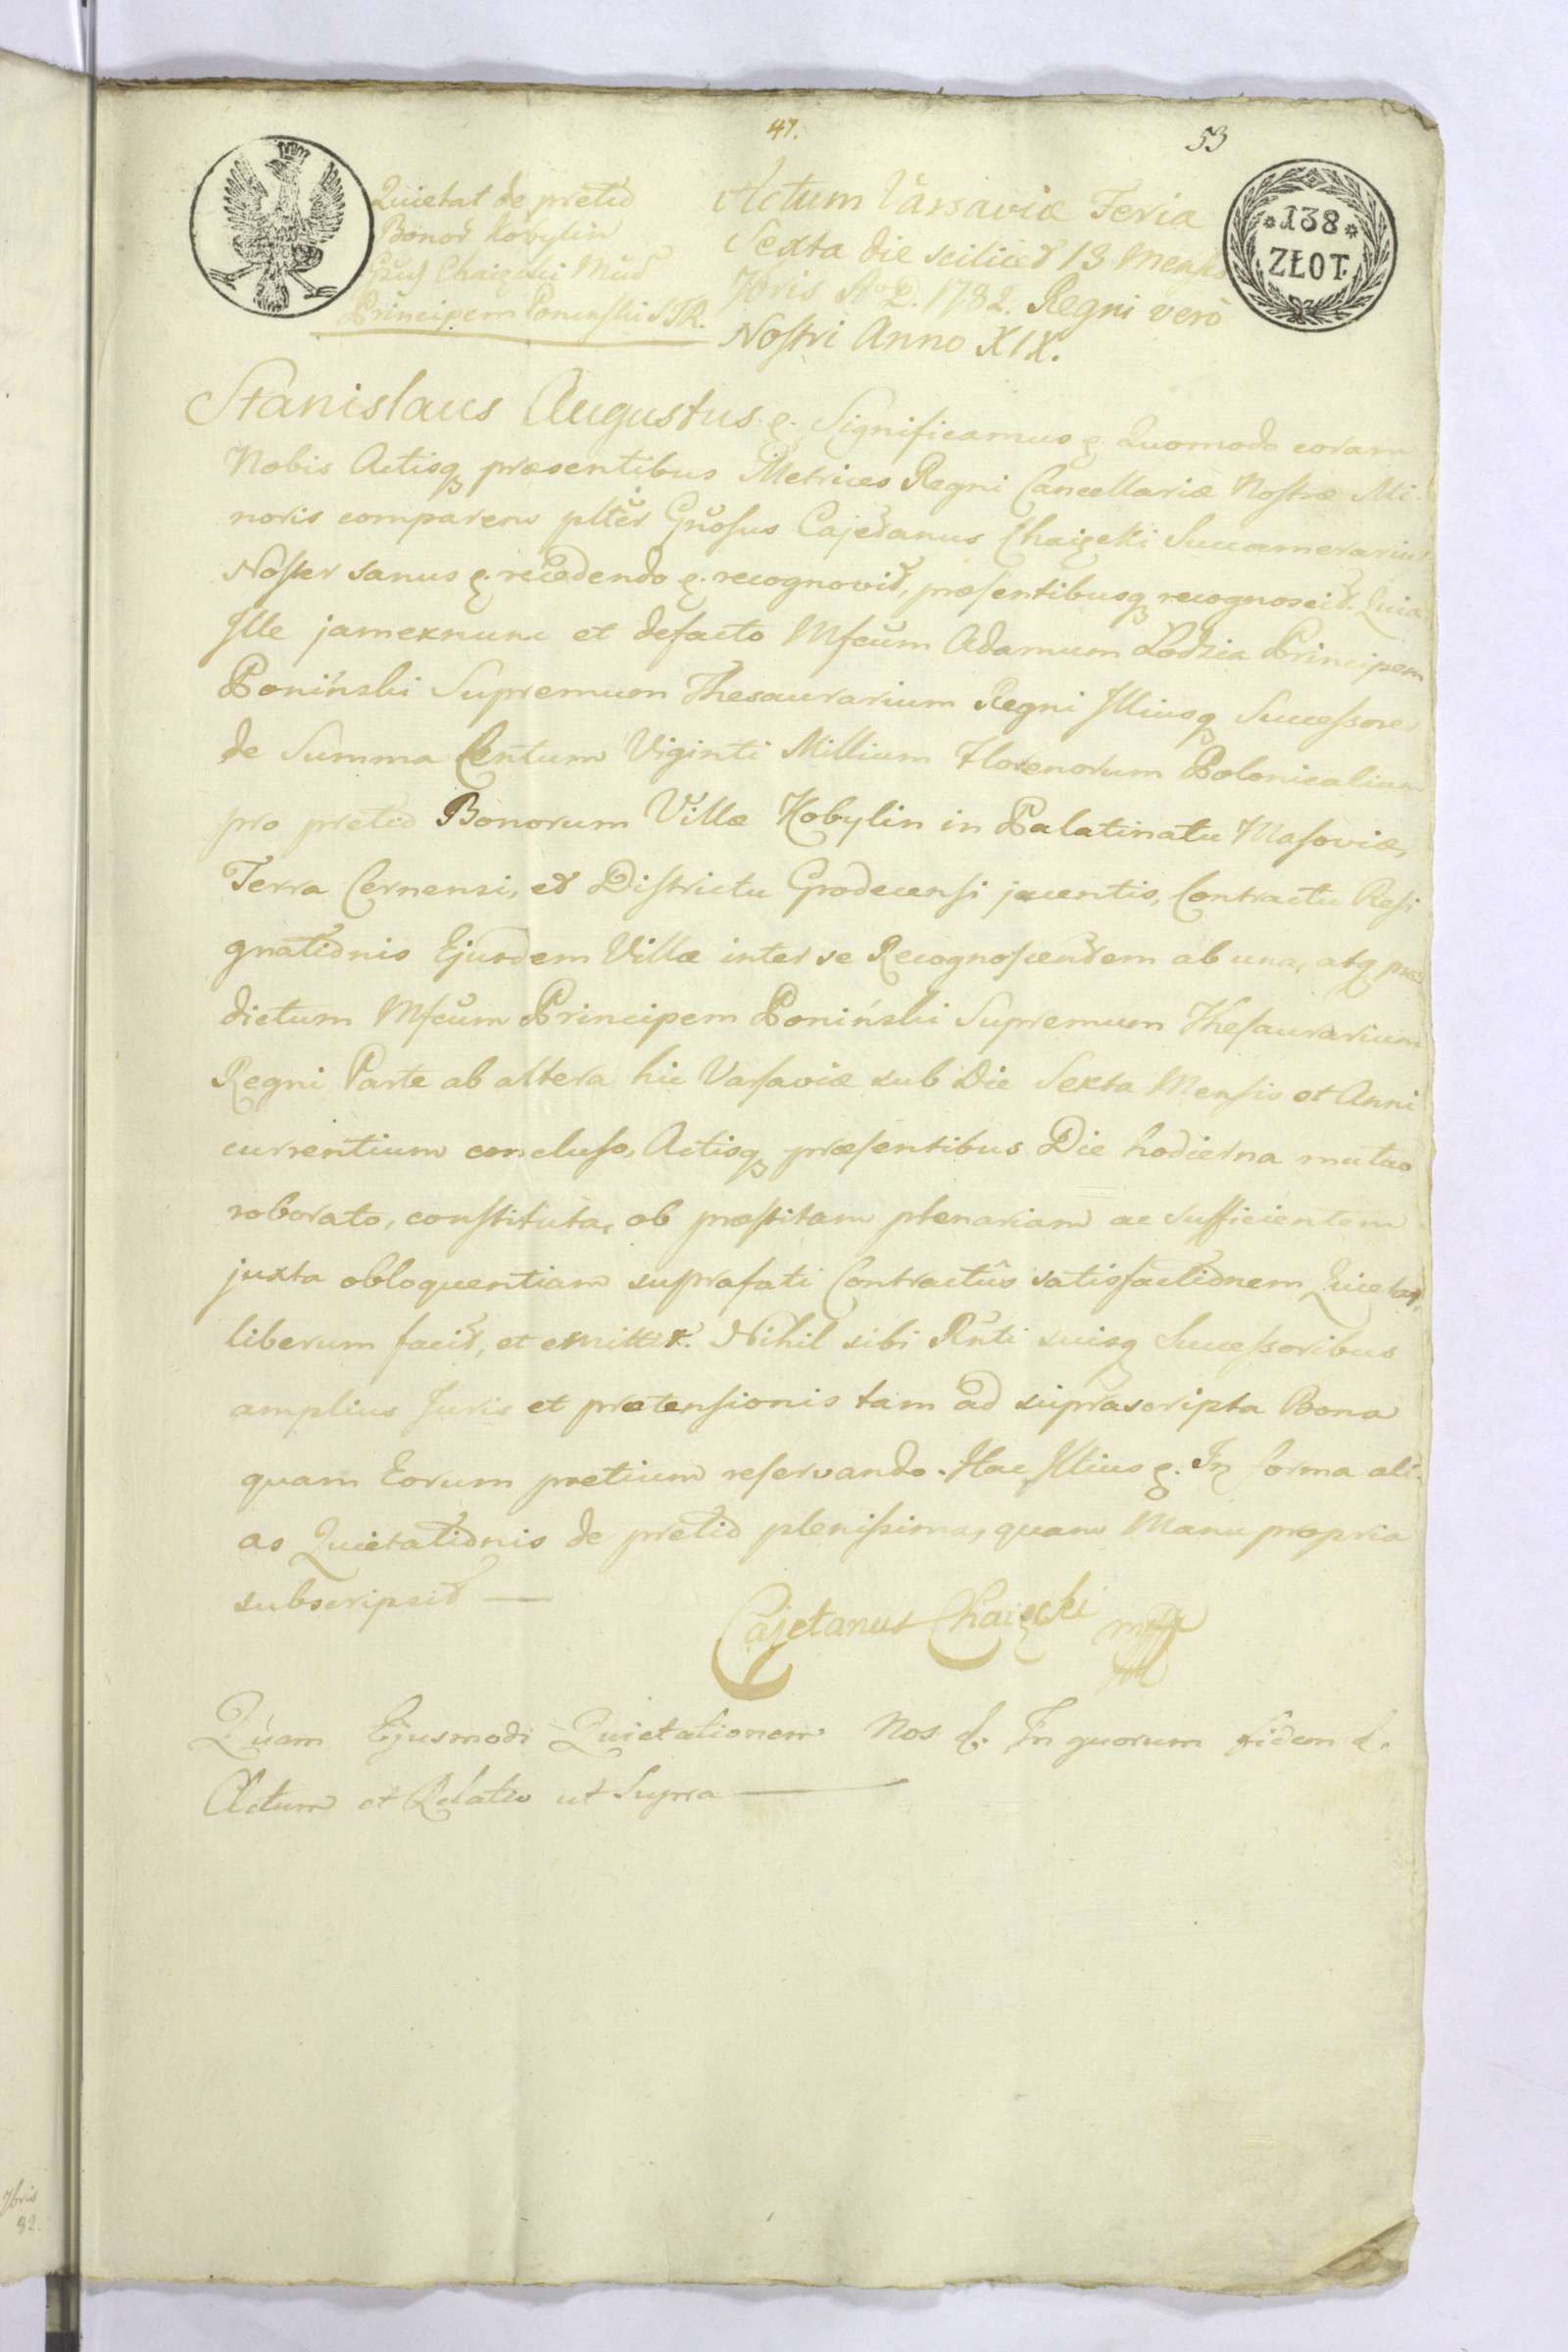 47.
53
138
ZŁOT.
Quietat de pretio
Bonor Kobylin
Chaięcki
Principem Poninski STR.
Actum Varsaviæ Feria
Sexta die scilicet 13 Mensis
7bris 1782. Regni vero
Nostri Anno XIX.
Stanislaus Augustus Significamus Quomodo coram
Nobis Actisq præsentibus Metrices Regni Cancellariæ Nostræ Mi-
noris comparens plter Gnosus Cajetanus Chaięcki Succamerarius
Noster sanus recedendo recognovit, præsentibusq recognoscit. Quia
Ille jamexnunc et defacto Mfcum Adamum Łodzia Principem
Poniński Supremum Thesaurarium Regni Illiusq Successores
de Summa Centum Viginti Millium Florenorum Polonicalium
pro pretio Bonorum Villæ Kobylin in Palatinatu Masoviæ,
Terra Cernensi, et Districtu Grodecensi jacentis, Contractu Resi
gnationis Ejusdem Villæ inter se Recognoscendem ab una, atq præ
dictum Mfcum Principem Poniński Supremum Thesaurarium
Regni Parte ab altera hic Varsaviæ sub Die Sexta Mensis et Anni
currentium concluso, Actisq præsentibus Die hodierna mutuo
roborato, constituta, ob præstitam plenariam ac sufficientem
juxta obloquentiam suprafati Contractûs satisfactionem Quietat,
liberum facit, et emittit. Nihil sibi Rnti suisq Successoribus
amplius Juris et prætensionis tam ad suprascripta Bona
quam Eorum pretium reservando. Hac Illius In forma ali-
as Quietationis de pretio plenissima, quam Manu propria
subscripsit —
Cajetanus Chaięcki mpp
Quam Ejusmodi Quietationem Nos &. In quorum fidem &.
Actum et Relatio ut Supra —
7bris
82.